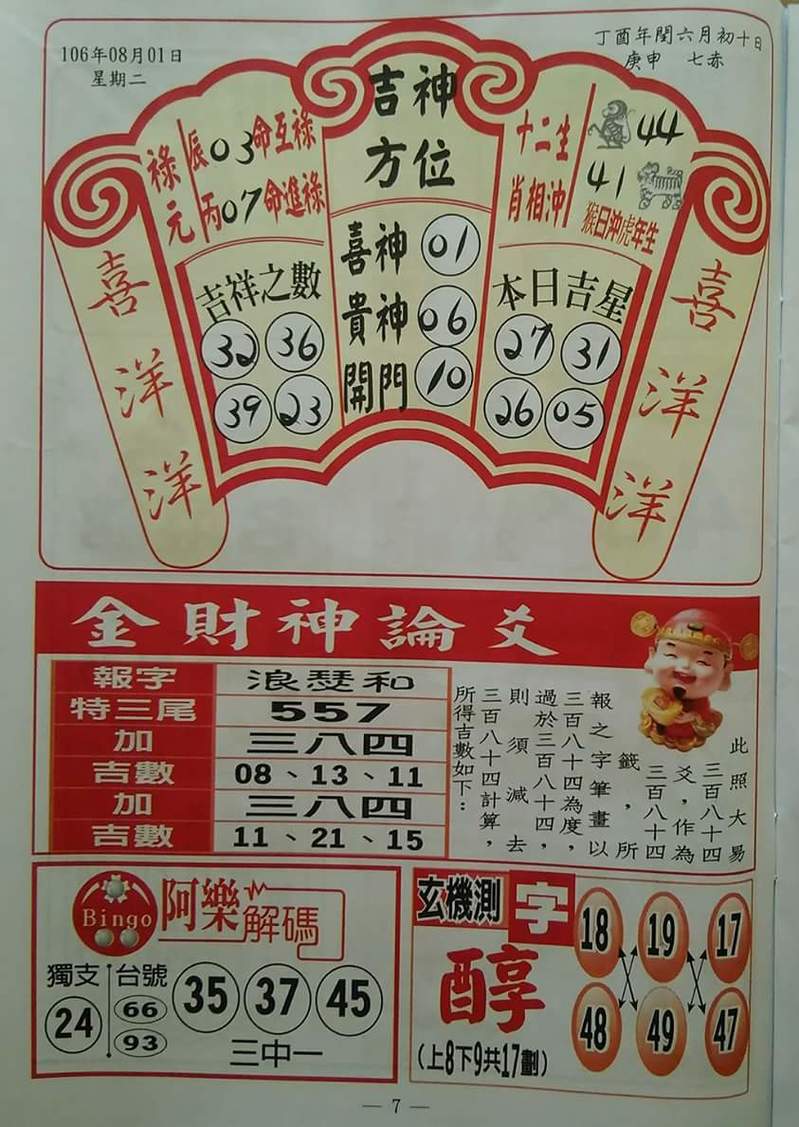 106年08月01日
星期二
丁酉年閏六月初十日
庚申 七赤
吉神
方位
喜神 01
貴神 06
開門 10
祿元
辰03命互祿
丙07命進祿
吉祥之數
32 36
39 23
十二生
肖相沖
44
41
猴日沖虎年生
本日吉星
27 31
26 05
喜洋洋
喜洋洋
金財神論爻
報字 浪瑟和
特三尾 557
加 三八四
吉數 08、13、11
加 三八四
吉數 11、21、15
此照大易
三百八十四
爻，作為
三百八十四
籤，所
報之字筆畫以
三百八十四為度，
過於三百八十四，
則須減去
三百八十四計算，
所得吉數如下：
Bingo
阿樂解碼
獨支
24
台號
66
93
35 37 45
三中一
玄機測字
醇
(上8下9共17劃)
18 19 17
48 49 47
— 7 —